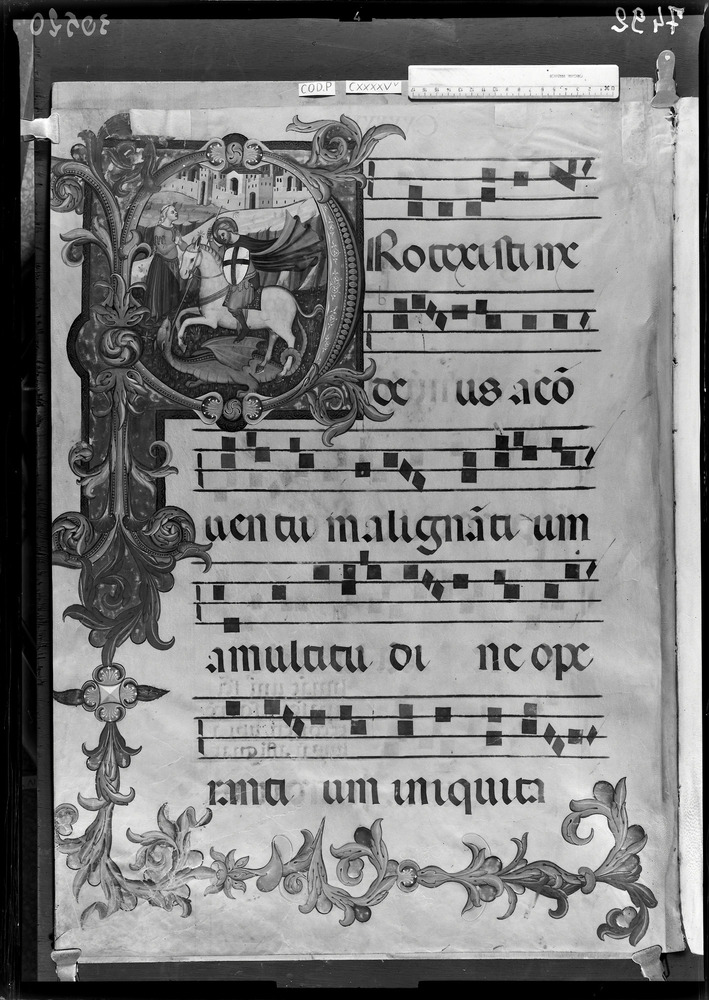 30520
4
7492
COD.P CXXXXV
PRotexisti me
de us a cō
uen tu malignāti um
amultitu di ne ope
ranti um iniquita